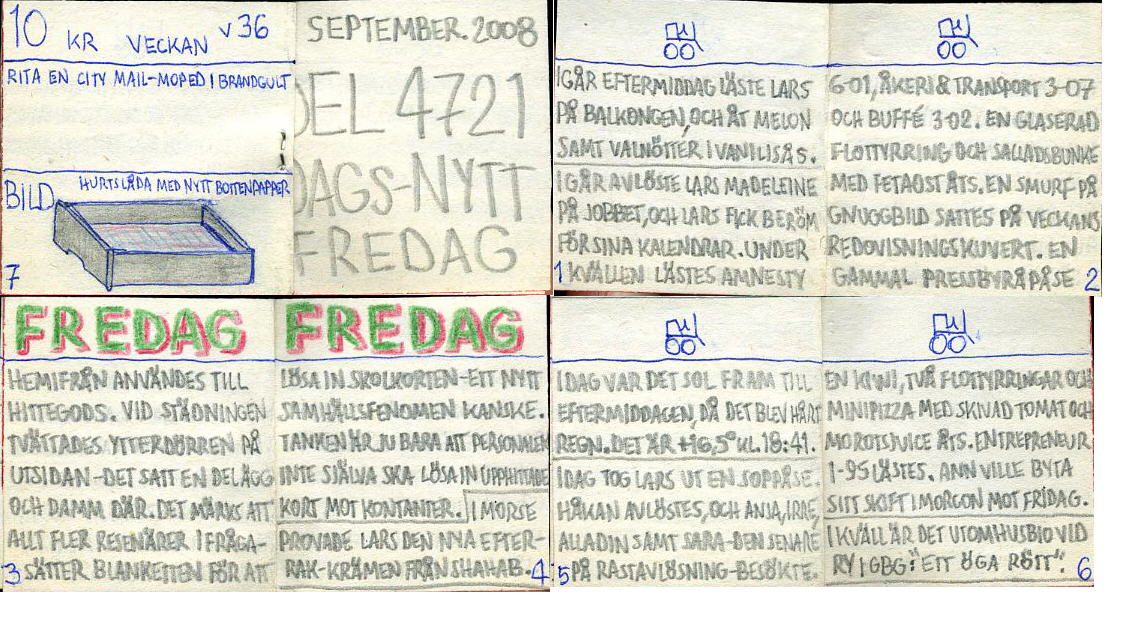 10 KR VECKAN v36
RITA EN CITY MAIL-MOPED I BRANDGULT
BILD
HURTSLÅDA MED NYTT BOTTENPAPPER
7
SEPTEMBER. 2008
DEL 4721
DAGS-NYTT
FREDAG
IGÅR EFTERMIDDAG LÄSTE LARS
PÅ BALKONGEN, OCH ÅT MELON
SAMT VALNÖTTER I VANILISÅS.
IGÅR AVLÖSTE LARS MADELEINE
PÅ JOBBET, OCH LARS FICK BERÖM
FÖR SINA KALENDRAR. UNDER
1 KVÄLLEN LÄSTES AMNESTY
6-01, ÅKERI & TRANSPORT 3-07
OCH BUFFÉ 3-02. EN GLASERAD
FLOTTYRRING OCH SALLADSBUNKE
MED FETAOST ÅTS. EN SMURF PÅ
GNUGGBILD SATTES PÅ VECKANS
REDOVISNINGSKUVERT. EN
GAMMAL PRESSBYRÅPÅSE 2
FREDAG
HEMIFRÅN ANVÄNDES TILL
HITTEGODS. VID STÄDNINGEN
TVÄTTADES YTTERDÖRREN PÅ
UTSIDAN-DET SATT EN DEL ÄGG
OCH DAMM DÄR. DET MÄRKS ATT
ALLT FLER RESENÄRER IFRÅGA-
3 SÄTTER BLANKETTEN FÖR ATT
FREDAG
LÖSA IN SKOLKORTEN-ETT NYTT
SAMHÄLLSFENOMEN KANSKE.
TANKEN ÄR JU BARA ATT PERSONALEN
INTE SJÄLVA SKA LÖSA IN UPPHITTADE
KORT MOT KONTANTER. I MORSE
PROVADE LARS DEN NYA EFTER-
RAK-KRÄMEN FRÅN SHAHAB. 4
IDAG VAR DET SOL FRAM TILL
EFTERMIDDAGEN, DÅ DET BLEV HÅRT
REGN. DET ÄR +16,5° KL. 18:41.
IDAG TOG LARS UT EN SOPPÅSE.
HÅKAN AVLÖSTES, OCH ANJA, IRRE,
ALLADIN SAMT SARA-DEN SENARE
5 PÅ RASTAVLÖSNING-BESÖKTE.
EN KIWI, TVÅ FLOTTYRRINGAR OCH
MINIPIZZA MED SKIVAD TOMAT OCH
MOROTSJUICE ÅTS. ENTREPRENEUR
1-95 LÄSTES. ANN VILLE BYTA
SITT SKIFT I MORGON MOT FRIDAG.
IKVÄLL ÄR DET UTOMHUSBIO VID
RY I GBG: "ETT ÖGA RÖTT". 6